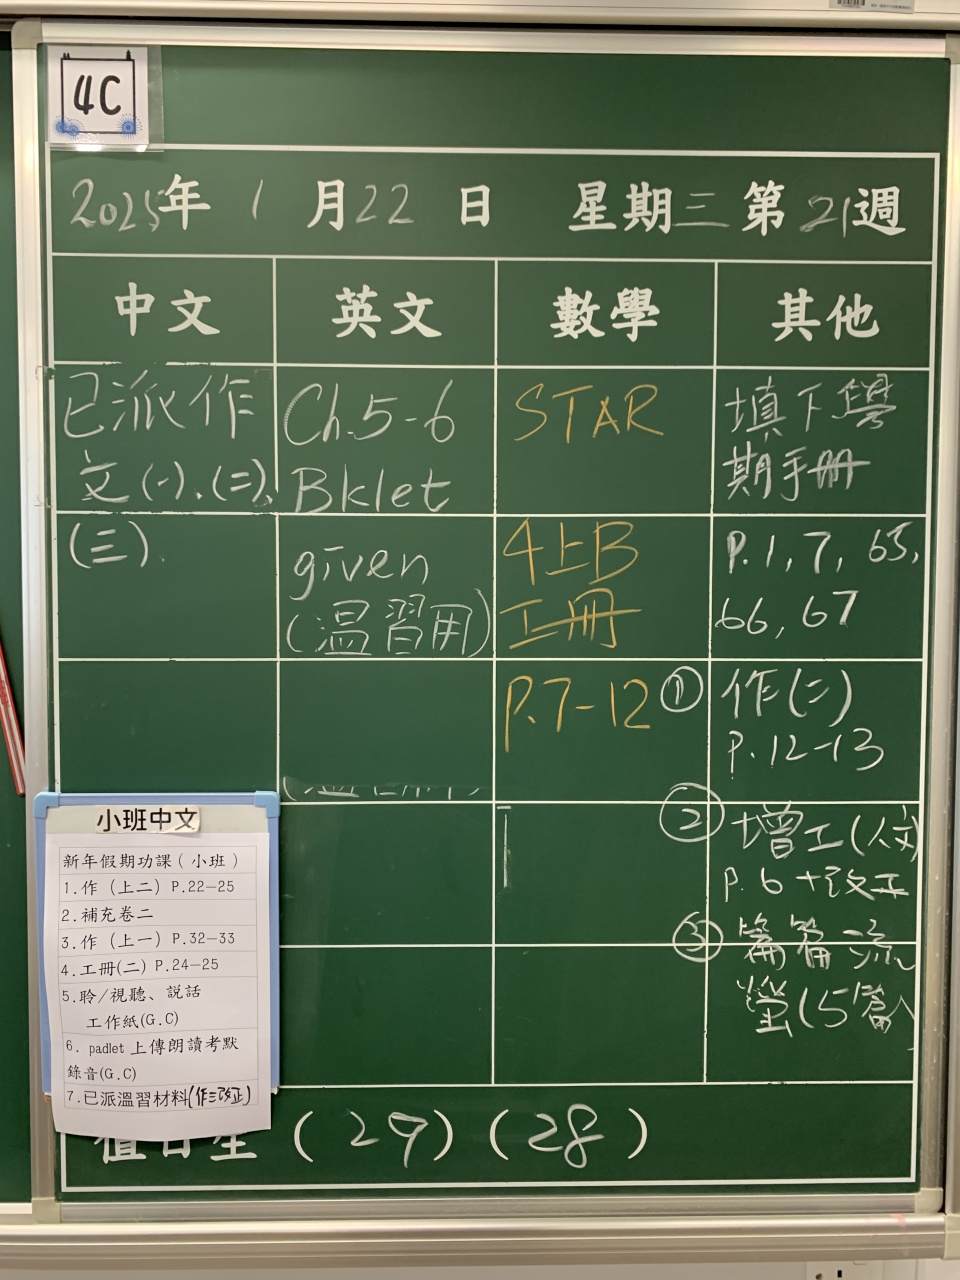 4C
2025年 1 月22 日 星期三第21週
中文 英文 數學 其他
已派作
文(一).(二).
(三).
Ch.5-6
Bklet
given
(温習用)
STAR
4上B
工冊
P.7-12
填下學
期手冊
P.1, 7, 65,
66, 67
① 作(二)
P.12-13
② 增工(人文)
P.6+改正
③ 篇篇流
螢(5篇)
小班中文
新年假期功課(小班)
1.作(上二) P.22-25
2.補充卷二
3.作(上一) P.32-33
4.工冊(二) P.24-25
5.聆/視聽、說話
工作紙(G.C)
6. padlet上傳朗讀考默
錄音(G.C)
7.已派溫習材料(作三改正)
值日生 (29)(28)